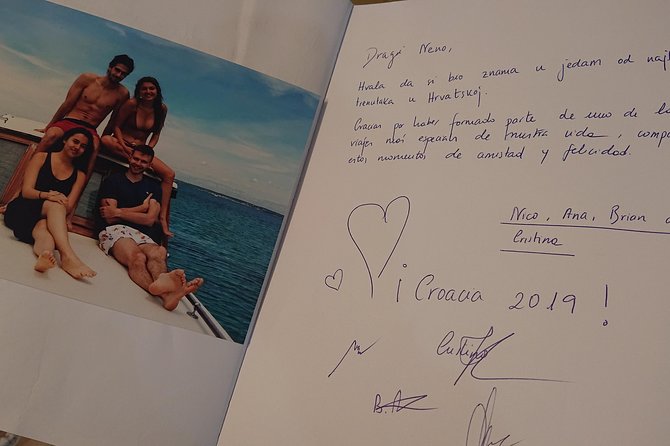 Dragi Neno,
Hvala da si bio znama u jedam od najl
trenutaka u Hrvatskoj.
Gracias por haber formado parte de uno de lo
viajes más especiales de nuestra vida, comp
estos momentos de amistad y felicidad.
Nico, Ana, Brian
Cristina
¡Croacia 2019!
Cristina
B.A